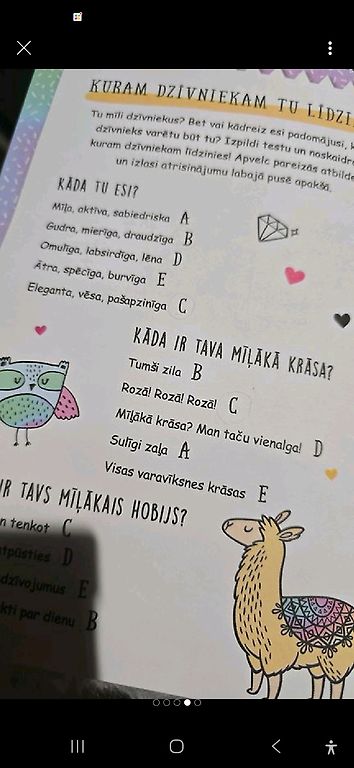 KURAM DZĪVNIEKAM TU
Tu mīli dzīvniekus? Bet vai kādreiz esi padomājusi,
dzīvnieks varētu būt tu? Izpildi testu un
kuram dzīvniekam līdzinies! Apvelc pareizās
un izlasi atrisinājumu labajā pusē apakšā.
KĀDA TU ESI?
Mīļa, aktīva, sabiedriska A
Gudra, mierīga, draudzīga B
Omulīga, labsirdīga, lēna D
Ātra, spēcīga, burvīga E
Eleganta, vēsa, pašapzinīga C
KĀDA IR TAVA MĪĻĀKĀ KRĀSA?
Tumši zila B
Rozā! Rozā! Rozā! C
Mīļākā krāsa? Man taču vienalga! D
Sulīgi zaļa A
Visas varavīksnes krāsas E
IR TAVS MĪĻĀKAIS HOBIJS?
tenkot C
D
E
par dienu B